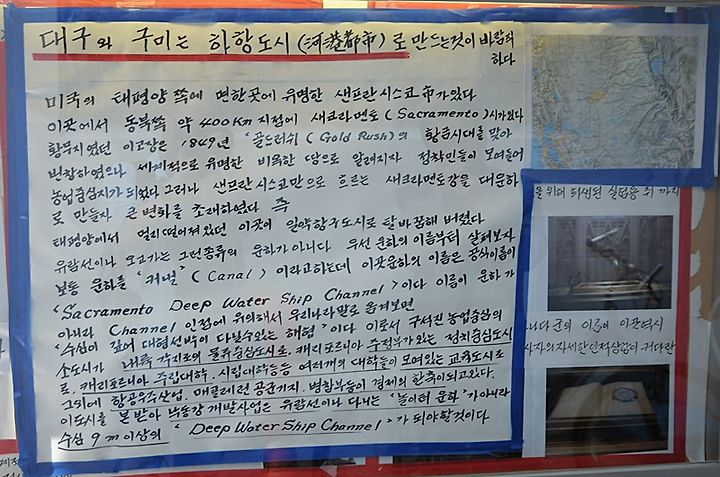 대구와 구미는 하항도시(河港都市)로 만드는것이 바람직
하다
미국의 태평양쪽에 면한곳에 유명한 샌프란시스코市가있다
이곳에서 동북쪽 약 400Km 지점에 새크라멘토(Sacramento)시가있다
황무지였던 이고장은 1849년 "골드러쉬(Gold Rush)의 황금시대를 맞아
번창하였으나 세계적으로 유명한 비옥한 땅으로 알려지자 정착민들이 모여들어
농업중심지가 되었다 그러나 샌프란시스코만으로 흐르는 새크라멘토강을 대운하
로 만들자 큰 변화를 초래하였다 즉
태평양에서 멀리떨어져있던 이곳이 일약항구도시로 탈바꿈해 버렸다
유람선이나 오고가는 그런종류의 운하가아니다 우선 운하의 이름부터 살펴보자
보통 운하를 "커낼"(Canal)이라고하는데 이곳운하의 이름은 공식이름이
"Sacramento Deep Water Ship Channel"이다 이름이 운하가
아니라 Channel 인점에 유의해서 우리나라말로 옮겨보면
"수심이 깊어 대형선박이 다닐수있는 해협"이다 이로서 구석진 농업중심의
소도시가 내륙 각지로의 물류중심도시로, 캐리포르니아 주정부가 있는 정치중심도시
로, 캐리포르니아 주립대학, 시립대학등등 여러개의 대학들이 모여있는 교육도시로
그외에 항공우주산업, 매클레런 공군기지, 병참부등이 경제의 한축이되고있다.
이도시를 본받아 낙동강 개발사업은 유람선이나 다니는 "놀이터 운하"가아니라
수심 9m 이상의 "Deep Water Ship Channel"가 되야할것이다
을위해 희생된
까지
이름이